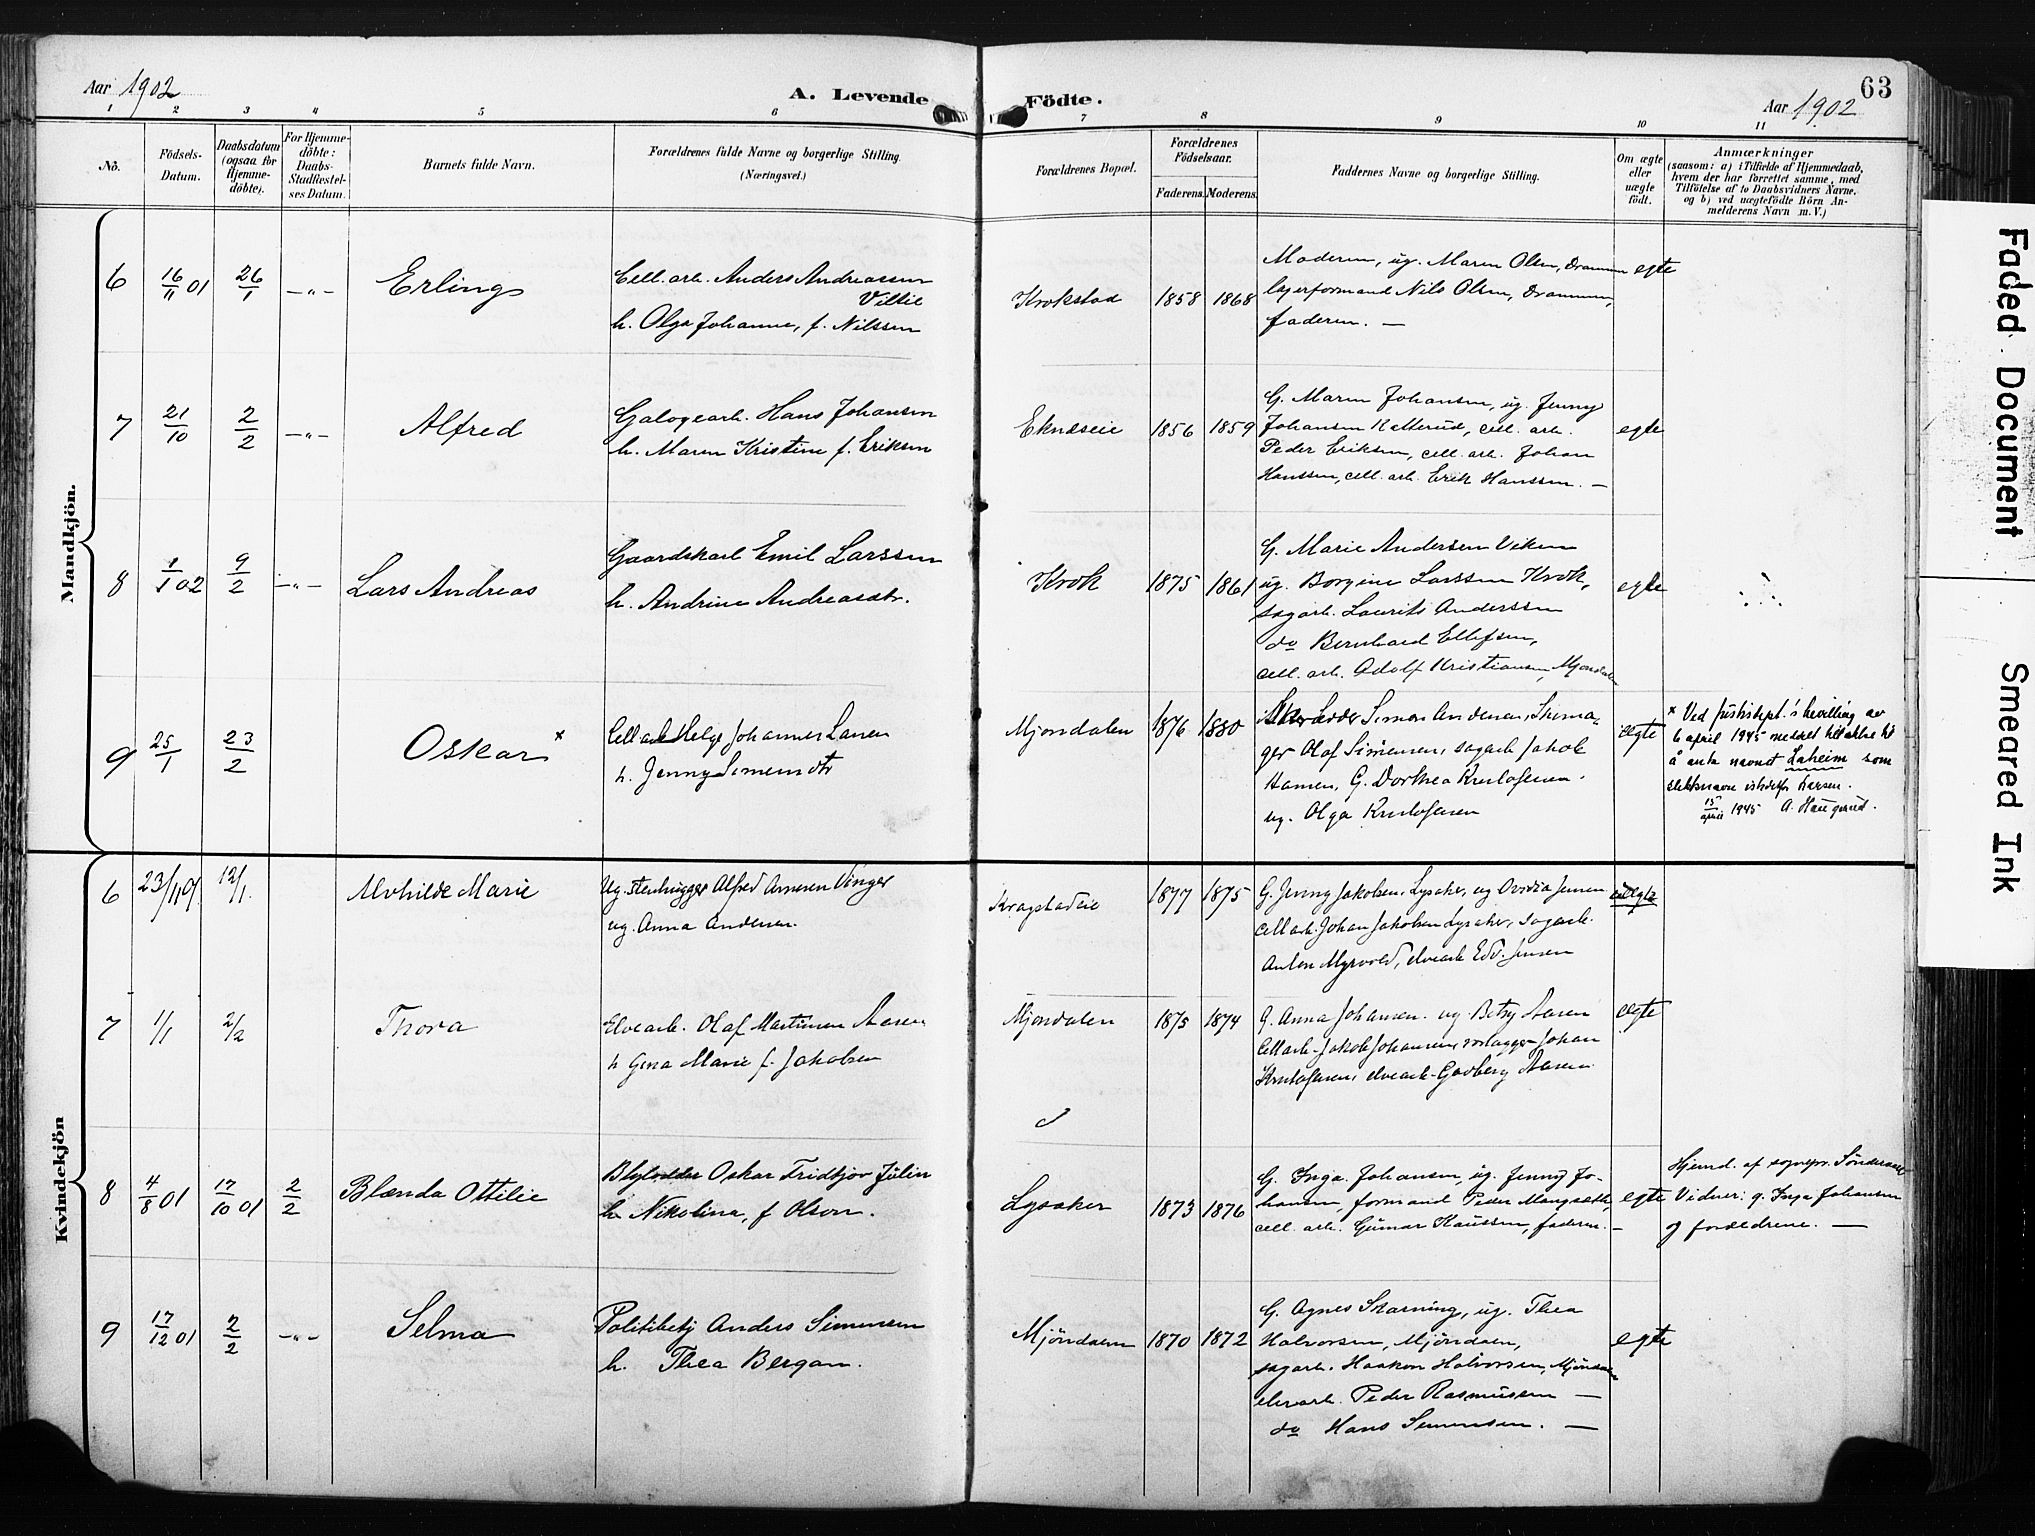 Aar 1902
A. Levende Födte.
63
Aar 1902
1 2 3 4 5 6 7 8 9 10 11
No.
Födsels-Datum.
Daabsdatum (ogsaa for Hjemme-döbte).
For Hjemme-döbte: Daabs-Stadfæstel-ses Datum.
Barnets fulde Navn.
Forældrenes fulde Navne og borgerlige Stilling. (Næringsvei.)
Forældrenes Bopæl.
Forældrenes Födselsaar.
Faderens. Moderens.
Faddernes Navne og borgerlige Stilling.
Om ægte eller uægte födt.
Anmærkninger
(saasom: a) i Tilfælde af Hjemmedaab,
hvem der har forrettet samme, med
Tilföielse af to Daabsvidners Navne.
og b) ved uægtefödte Börn An-
melderens Navn m. V.)
Mandkjön.
6 16/11 01 26/1 -"- Erling
Cell. arb. Anders Andreassen
Voltie
h. Olga Johanne, f. Nilssen
Krokstad 1858 1868
Moderen, ug. Maren Olsen, Drammen
lagerformand Nils Olsen, Drammen,
faderen. —
egte
7 21/10 2/2 -"- Alfred
Galogearb. Hans Johansen
h. Maren Kristine f. Eriksen
Eknæseie 1856 1859
G. Maren Johansen, ug. Jenny
Johansen Kallerud, cell. arb.
Peder Eriksen, cell. arb. Johan
Hanssen, cell. arb. Erik Hanssen. —
egte
8 1/1 02 9/2 -"- Lars Andreas
Gaardskarl Emil Larssen
h. Andrine Andreasdtr.
Krok 1875 1861
G. Marie Andersen Viken
ug. Borgine Larssen Krok,
sagarb. Laurits Anderssen
do Bernhard Ellefsen,
cell. arb. Adolf Kristiansen, Mjöndalen
egte
9 25/1 23/2 Oskar x
Cellarb Helge Johannes Larsen
h. Jenny Simensdtr
Mjondalen 1876 1880
Simon Andersen, Skoma-
ger Olaf Simensen, sagarb Jakob
Hansen, G. Dorthea Kristofersen
ug. Olga Kristofersen
ægte
x Ved Justisdept.'s bevilling av
6 april 1945 meddelt tillatelse til
å anta navnet Laheim som
slektsnavn istedetfor Larsen.
15/april 1945 A. Haugerud.
Kvindekjön
6 23/11 01 12/1 Alvhilde Marie
Ug. stenhugger Alfred Arnesen Vinger
ug. Anna Andersen.
Krogstadeie 1877 1875
G. Jenny Jakobsen, Lysaker, ug Ovidia Jensen
cellarb. Johan Jakobsen Lysaker, sagarb.
Anton Myrvold, elvearb Edv. Jensen
uægte
7 1/1 2/2 Thora
Elvearb. Olaf Martinsen Aasen
h Gina Marie f. Jakobsen
Mjondalen 1875 1874
G. Anna Johansen. ug Betsy Aasen
Cellarb. Jakob Johansen, Johan
Kristofersen, elvearb. Godberg Aasen
ægte
8 4/8 01 17/10 01 2/2 Blænda Ottilie
Oskar Fridtjov Julin
h. Nikolina, f. Olson.
Lysaker 1873 1876
G. Inga Johansen, ug. Jenny Jo-
hansen, formand Peder Mangseth,
cell. arb. Gunnar Knussen, faderen.
egte
Hjemd. af sognepr. Sönderaal
Vidner: g. Inga Johansen
og forældrene. —
9 17/12 01 2/2 -"- Selma
Politibetj Anders Simensen
h. Thea Bergan.
Mjöndalen 1870 1872
G. Agnes Skarning, ug. Thea
Halvorsen, Mjöndalen,
sagarb. Haakon Halvorsen, Mjöndalen
elvearb. Peder Rasmussen —
do Hans Simensen. —
egte
Faded Document
Smeared Ink